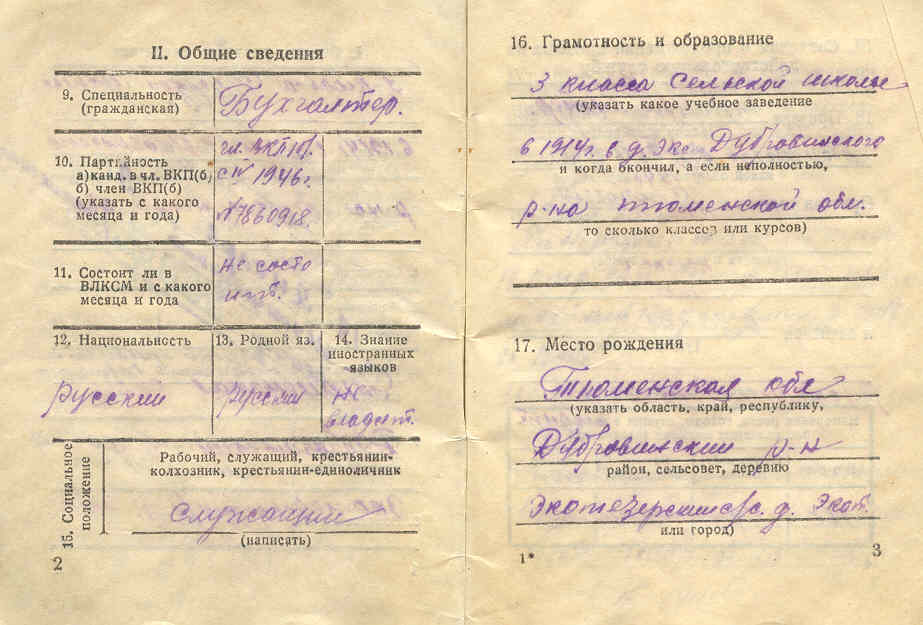 II. Общие сведения
9. Специальность
(гражданская)
Бухгалтер.
10. Партийность
а) канд. в чл. ВКП(б)
б) член ВКП(б)
(указать с какого
месяца и года)
чл. ВКП(б)
с IV 1946 г.
№7860918.
11. Состоит ли в
ВЛКСМ и с какого
месяца и года
не состо
ит.
12. Национальность
русский
13. Родной яз.
русский
14. Знание
иностранных
языков
не
владеет.
15. Социальное
положение
Рабочий, служащий, крестьянин-
колхозник, крестьянин-единоличник
служащий
(написать)
2
16. Грамотность и образование
3 класса Сельской школы
(указать какое учебное заведение
в 1914 г. в д. Эк. Дубровинского
и когда окончил, а если неполностью,
р-на тюменской обл.
то сколько классов или курсов)
17. Место рождения
Тюменская обл
(указать область, край, республику,
Дубровинский р-н
район, сельсовет, деревню
с. д. Экот.
или город)
1*
3